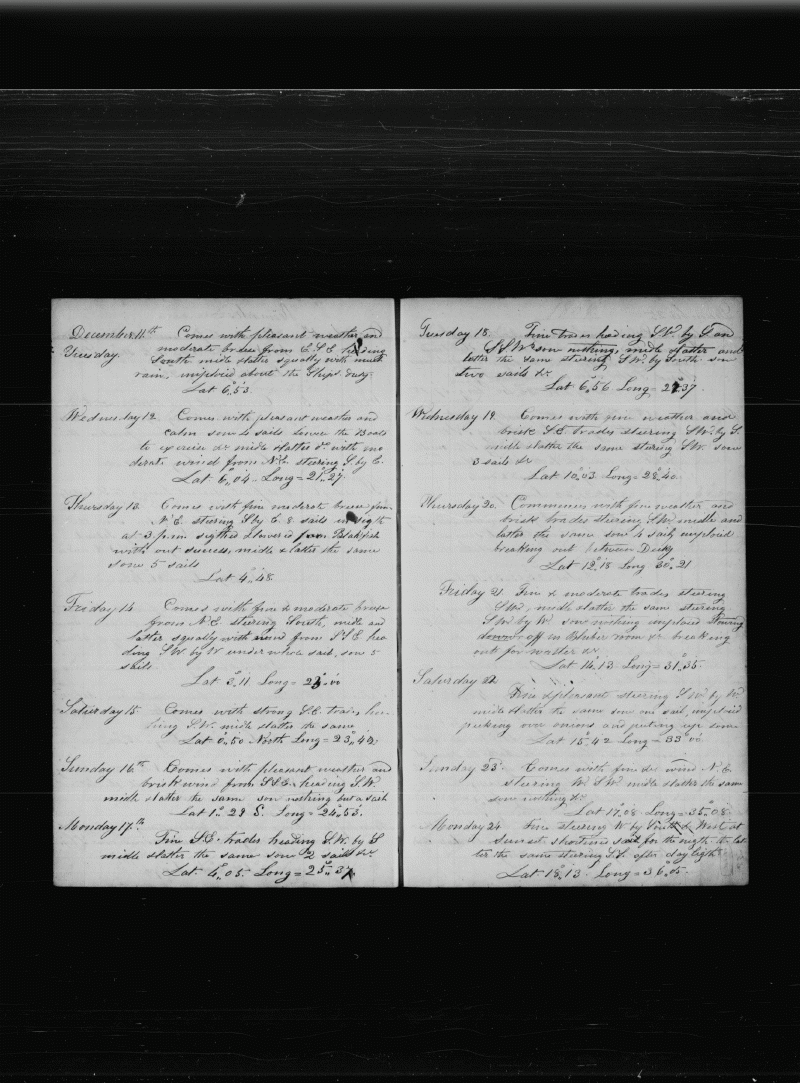 December 11th Comes with pleasant weather and
Tuesday. moderate breeze from E.S.E. heading
South midle & latter squally with much
rain, imploied about the Ships duty
Lat 6°,53
Wednesday 12. Comes with pleasant weather and
calm sow 4 sails lower the Boats
to exercise &c midle & latter do with mo
derate wind from N.E. steering S. by E.
Lat 6°,04. Long = 21°,27
Thursday 13. Comes with fine moderate breeze from
N.E. stering S by E 8 sails in sigth
at 3 p.m. sigthed & lowered for Blakfish
with out success, midle & latter the same
sow 5 sails
Lat 4°,48
Friday 14. Comes with fine & moderate breeze
from N.E. steering South, midle and
latter squally with wind from S.S.E. hea
ding S.W. by W under whole sail, sow 5
sails
Lat 3°,11 Long = 00
Saturday 15. Comes with strong S.E. trades hea
ding S.W. midle & latter the same
Lat 0°,50 North Long = 23°,44
Sunday 16th Comes with pleasant weather and
brisk wind from S.S.E. heading S.W.
midle & latter the same sow nothing but a sail
Lat 1°,29 S. Long = 24°,53
Monday 17th
Fine S.E. trades heading S.W. by S
midle & latter the same sow 2 sails &c
Lat 4°,05. Long = 25°,37
Tuesday 18. Fine trades heading S.W. by S an
S.S.W. sow nothing, midle & latter and
latter the same steering S.W. by South sow
two sails &c
Lat 6°,56 Long = 27°37
Wednesday 19. Comes with fine weather and
brisk S.E. trades steering S.W. by S.
midle & latter the same stering S.W. sow
3 sails &c
Lat 10°,03. Long = 28°,40
Thursday 20. Commences with fine weather and
brisk trades steering S.W. midle and
latter the same sow 4 sails imploied
breaking out between Decks
Lat 12°,18 Long 30°,21
Friday 21. Fine & moderate trades steering
S.W., midle & latter the same steering
S.W. by W. sow nothing imploied Stowing
down off in Bluber room &c breaking
out for water &c
Lat 14°,13 Long = 31°,35
Saturday 22
Fine & pleasant steering S.W. by W
midle & latter the same sow one sail, imploied
picking over onions and puting up some
Lat 15°,42 Long = 33°,00
Sunday 23. Comes with fine &c wind N.E.
steering W.S.W. midle & latter the same
sow nothing &c
Lat 17°,08 Long = 35°,08
Monday 24 Fine Steering W by South & West at
Sun set shortened sail for the nigth. the lat
ter the same steering after day ligth
Lat 18°,13. Long = 36°,05.